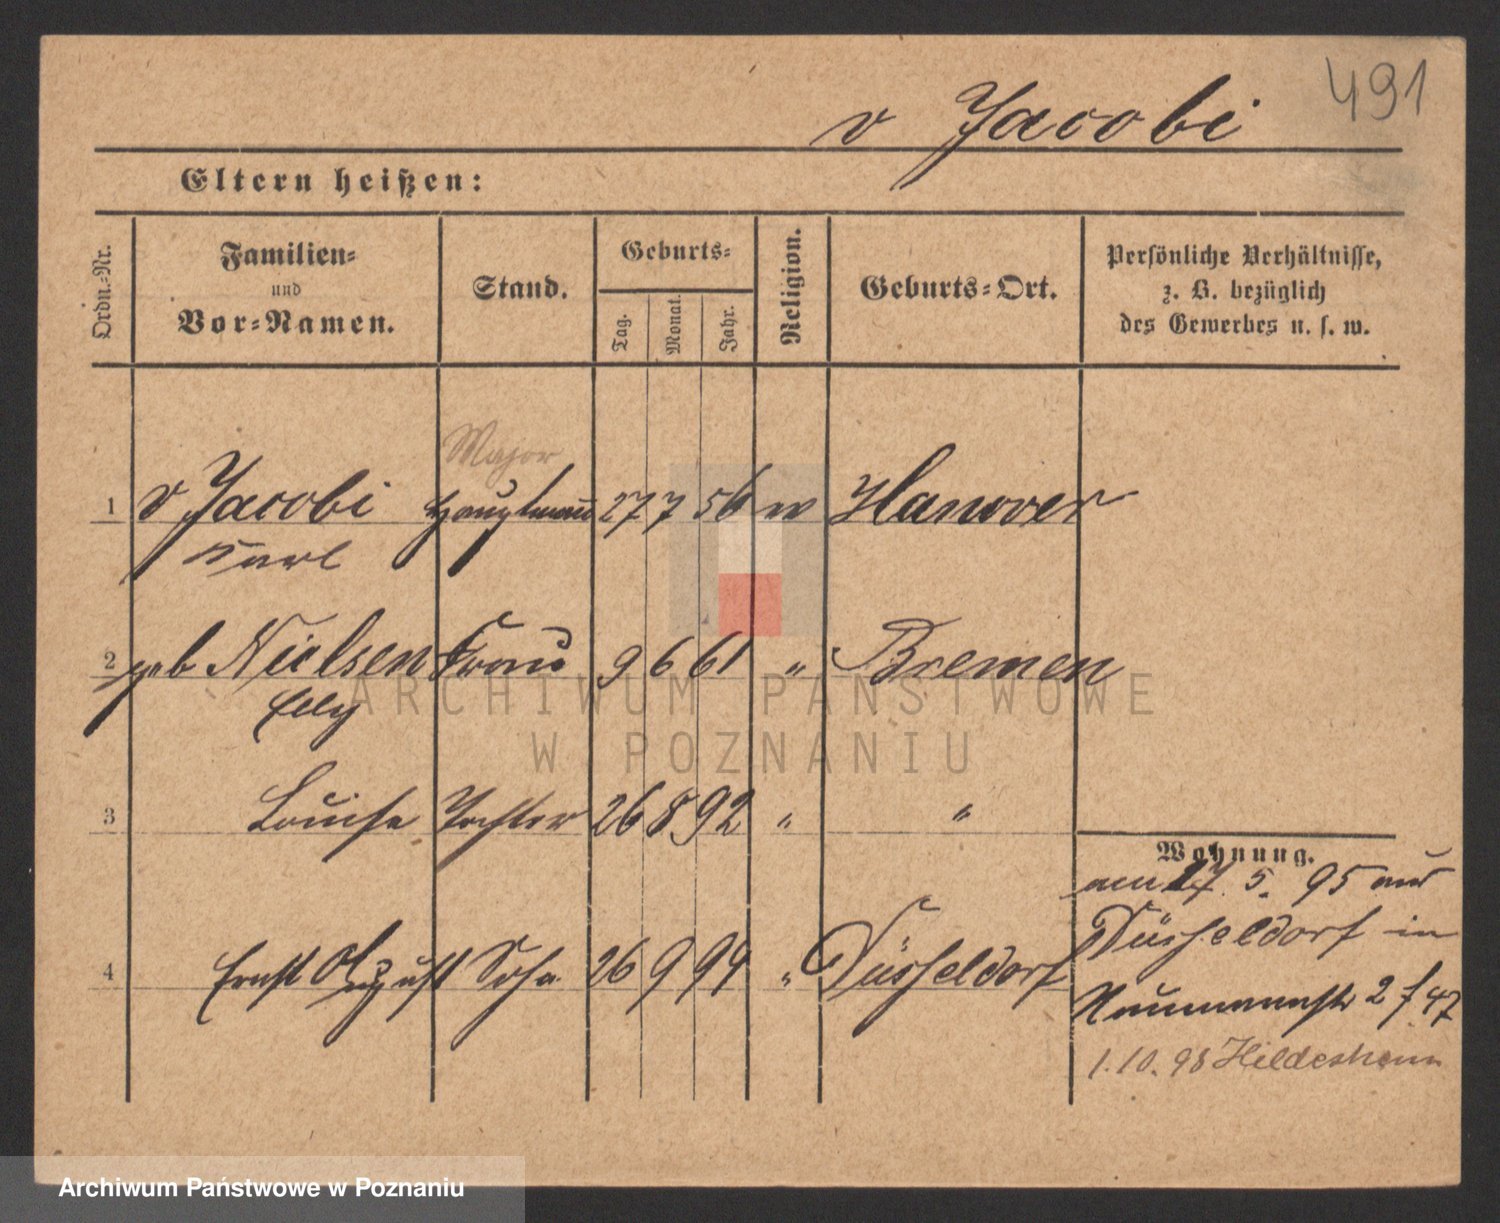 491
v Jacobi
Eltern heißen:
Ordn.-Nr.
Familien-
und
Vor-Namen.
Stand.
Geburts-
Tag.
Monat.
Jahr.
Religion.
Geburts-Ort.
Persönliche Verhältnisse,
z. B. bezüglich
des Gewerbes u. s. w.
Major
1 v Jacobi Hauptmann 27 7 56 Hanover
Karl
2 geb Nielsen Frau 9 6 61 " Bremen
Elly
ARCHIWUM PAŃSTWOWE
W POZNANIU
3 Louise Tochter 26 8 92 " "
Wohnung.
am 17. 5. 95 aus
Düsseldorf in
4 Ernst August Sohn 26 9 94 " Düsseldorf
Naumannstr 2 f 47
1.10.98 Hildesheim
Archiwum Państwowe w Poznaniu